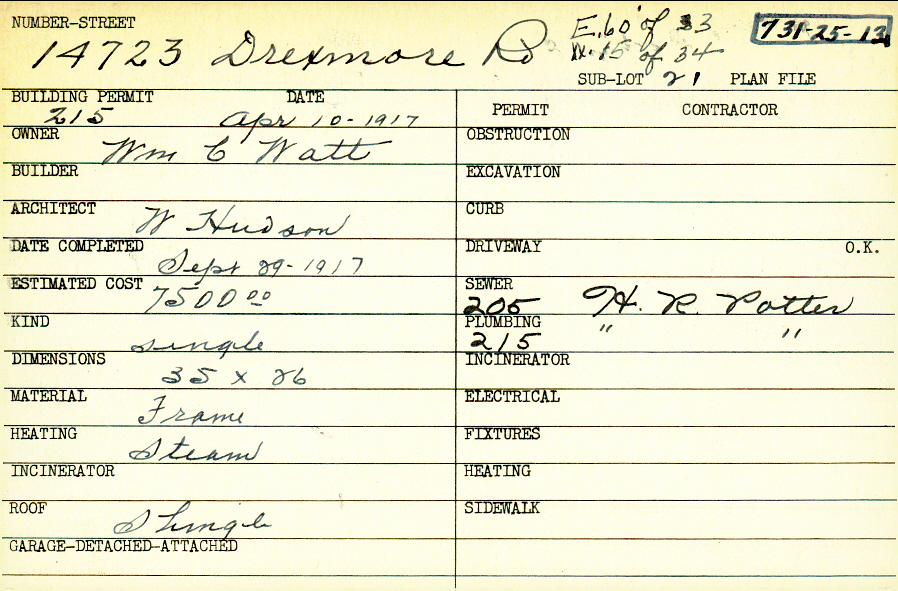 NUMBER-STREET
14723 Drexmore Rd
E. 60' of 33
W. 15 of 34
731-25-12
SUB-LOT 21 PLAN FILE
BUILDING PERMIT DATE
215 Apr 10-1917
OWNER
Wm C Watt
BUILDER
ARCHITECT
W Hudson
DATE COMPLETED
Sept 29-1917
ESTIMATED COST
7500 00
KIND
single
DIMENSIONS
35 x 26
MATERIAL
Frame
HEATING
Steam
INCINERATOR
ROOF
Shingle
GARAGE-DETACHED-ATTACHED
PERMIT CONTRACTOR
OBSTRUCTION
EXCAVATION
CURB
DRIVEWAY O.K.
SEWER
205 H. R. Potter
PLUMBING
215 " "
INCINERATOR
ELECTRICAL
FIXTURES
HEATING
SIDEWALK